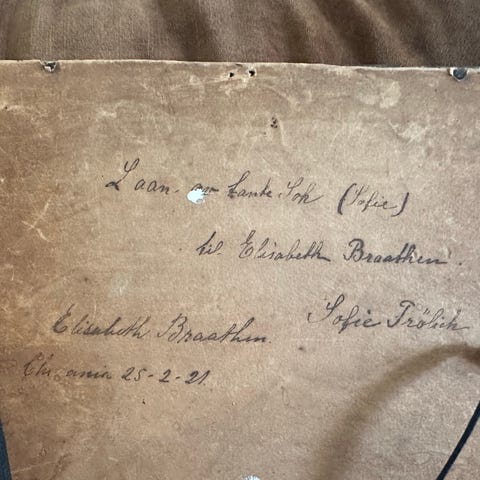 Laan av Tante Soh (Sofie)
til Elisabeth Braathen.
Sofie Frölich
Elisabeth Braathen.
Chr ania 25-2-21